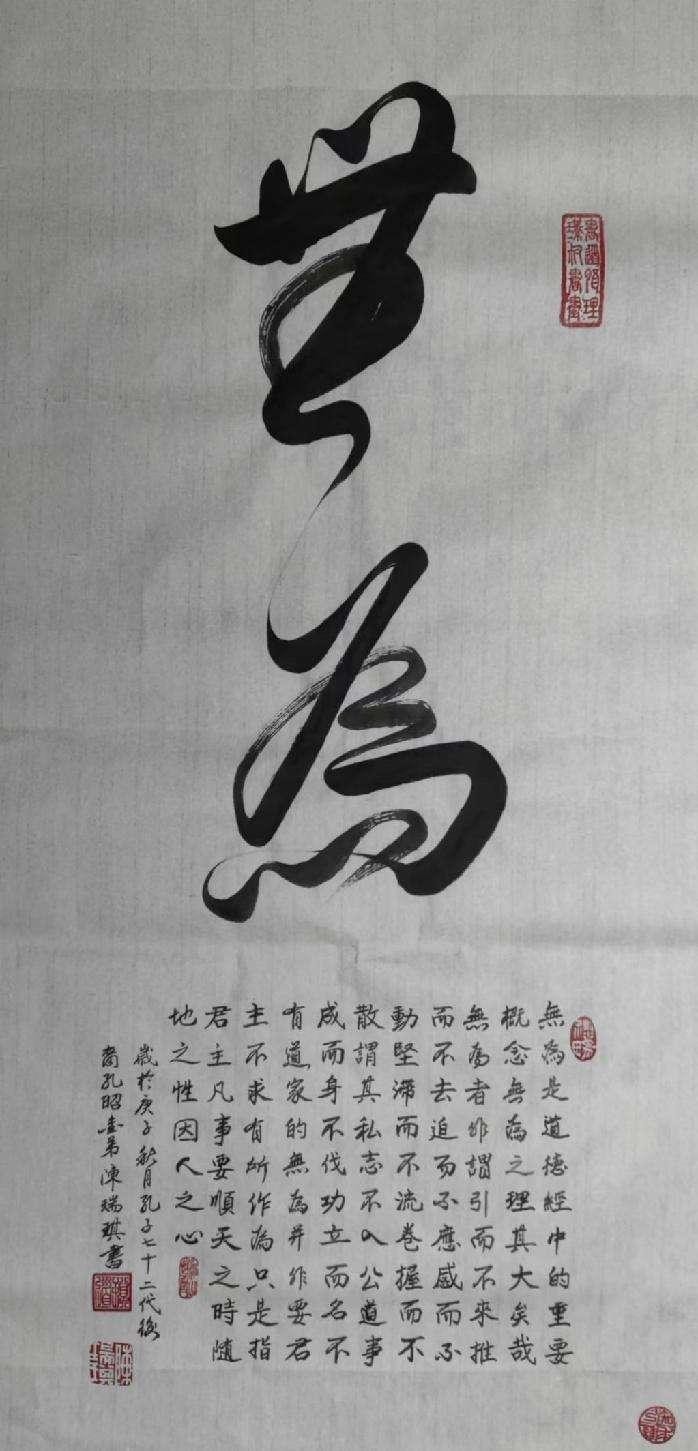 無為
無為是道德經中的重要
概念無為之理其大矣哉
無為者非謂引而不來推
而不去迫而不應感而不
動堅滯而不流卷握而不
散謂其私志不入公道事
成而身不伐功立而名不
有道家的無為并非要君
主不求有所作為只是指
君主凡事要順天之時隨
地之性因人之心
歲於庚子秋月孔子七十二代後
裔孔昭弟陳瑞琪書